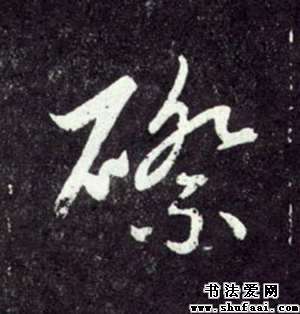 磜
书法爱网
www.shufaai.com